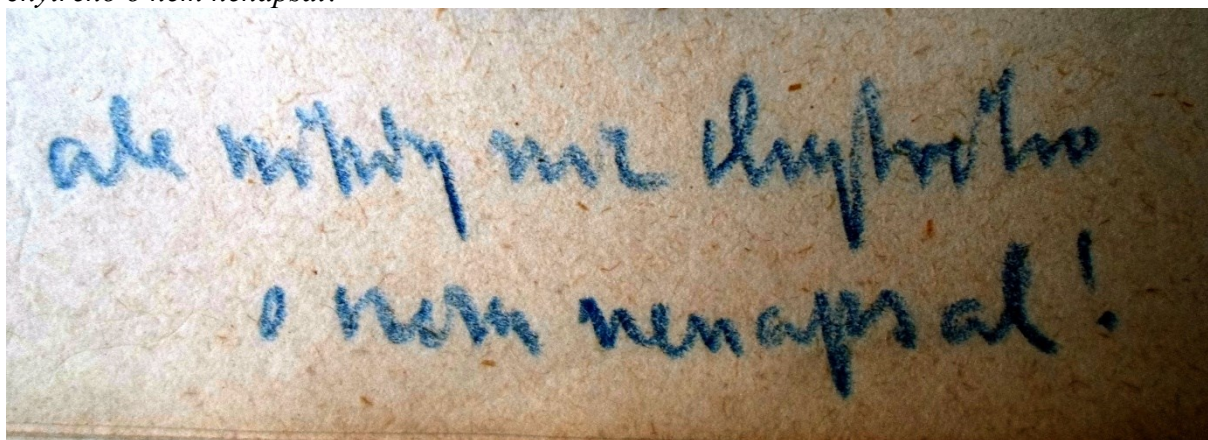 chytrého o něm nenapsal!
ale nikdy nic chytrého
o něm nenapsal!